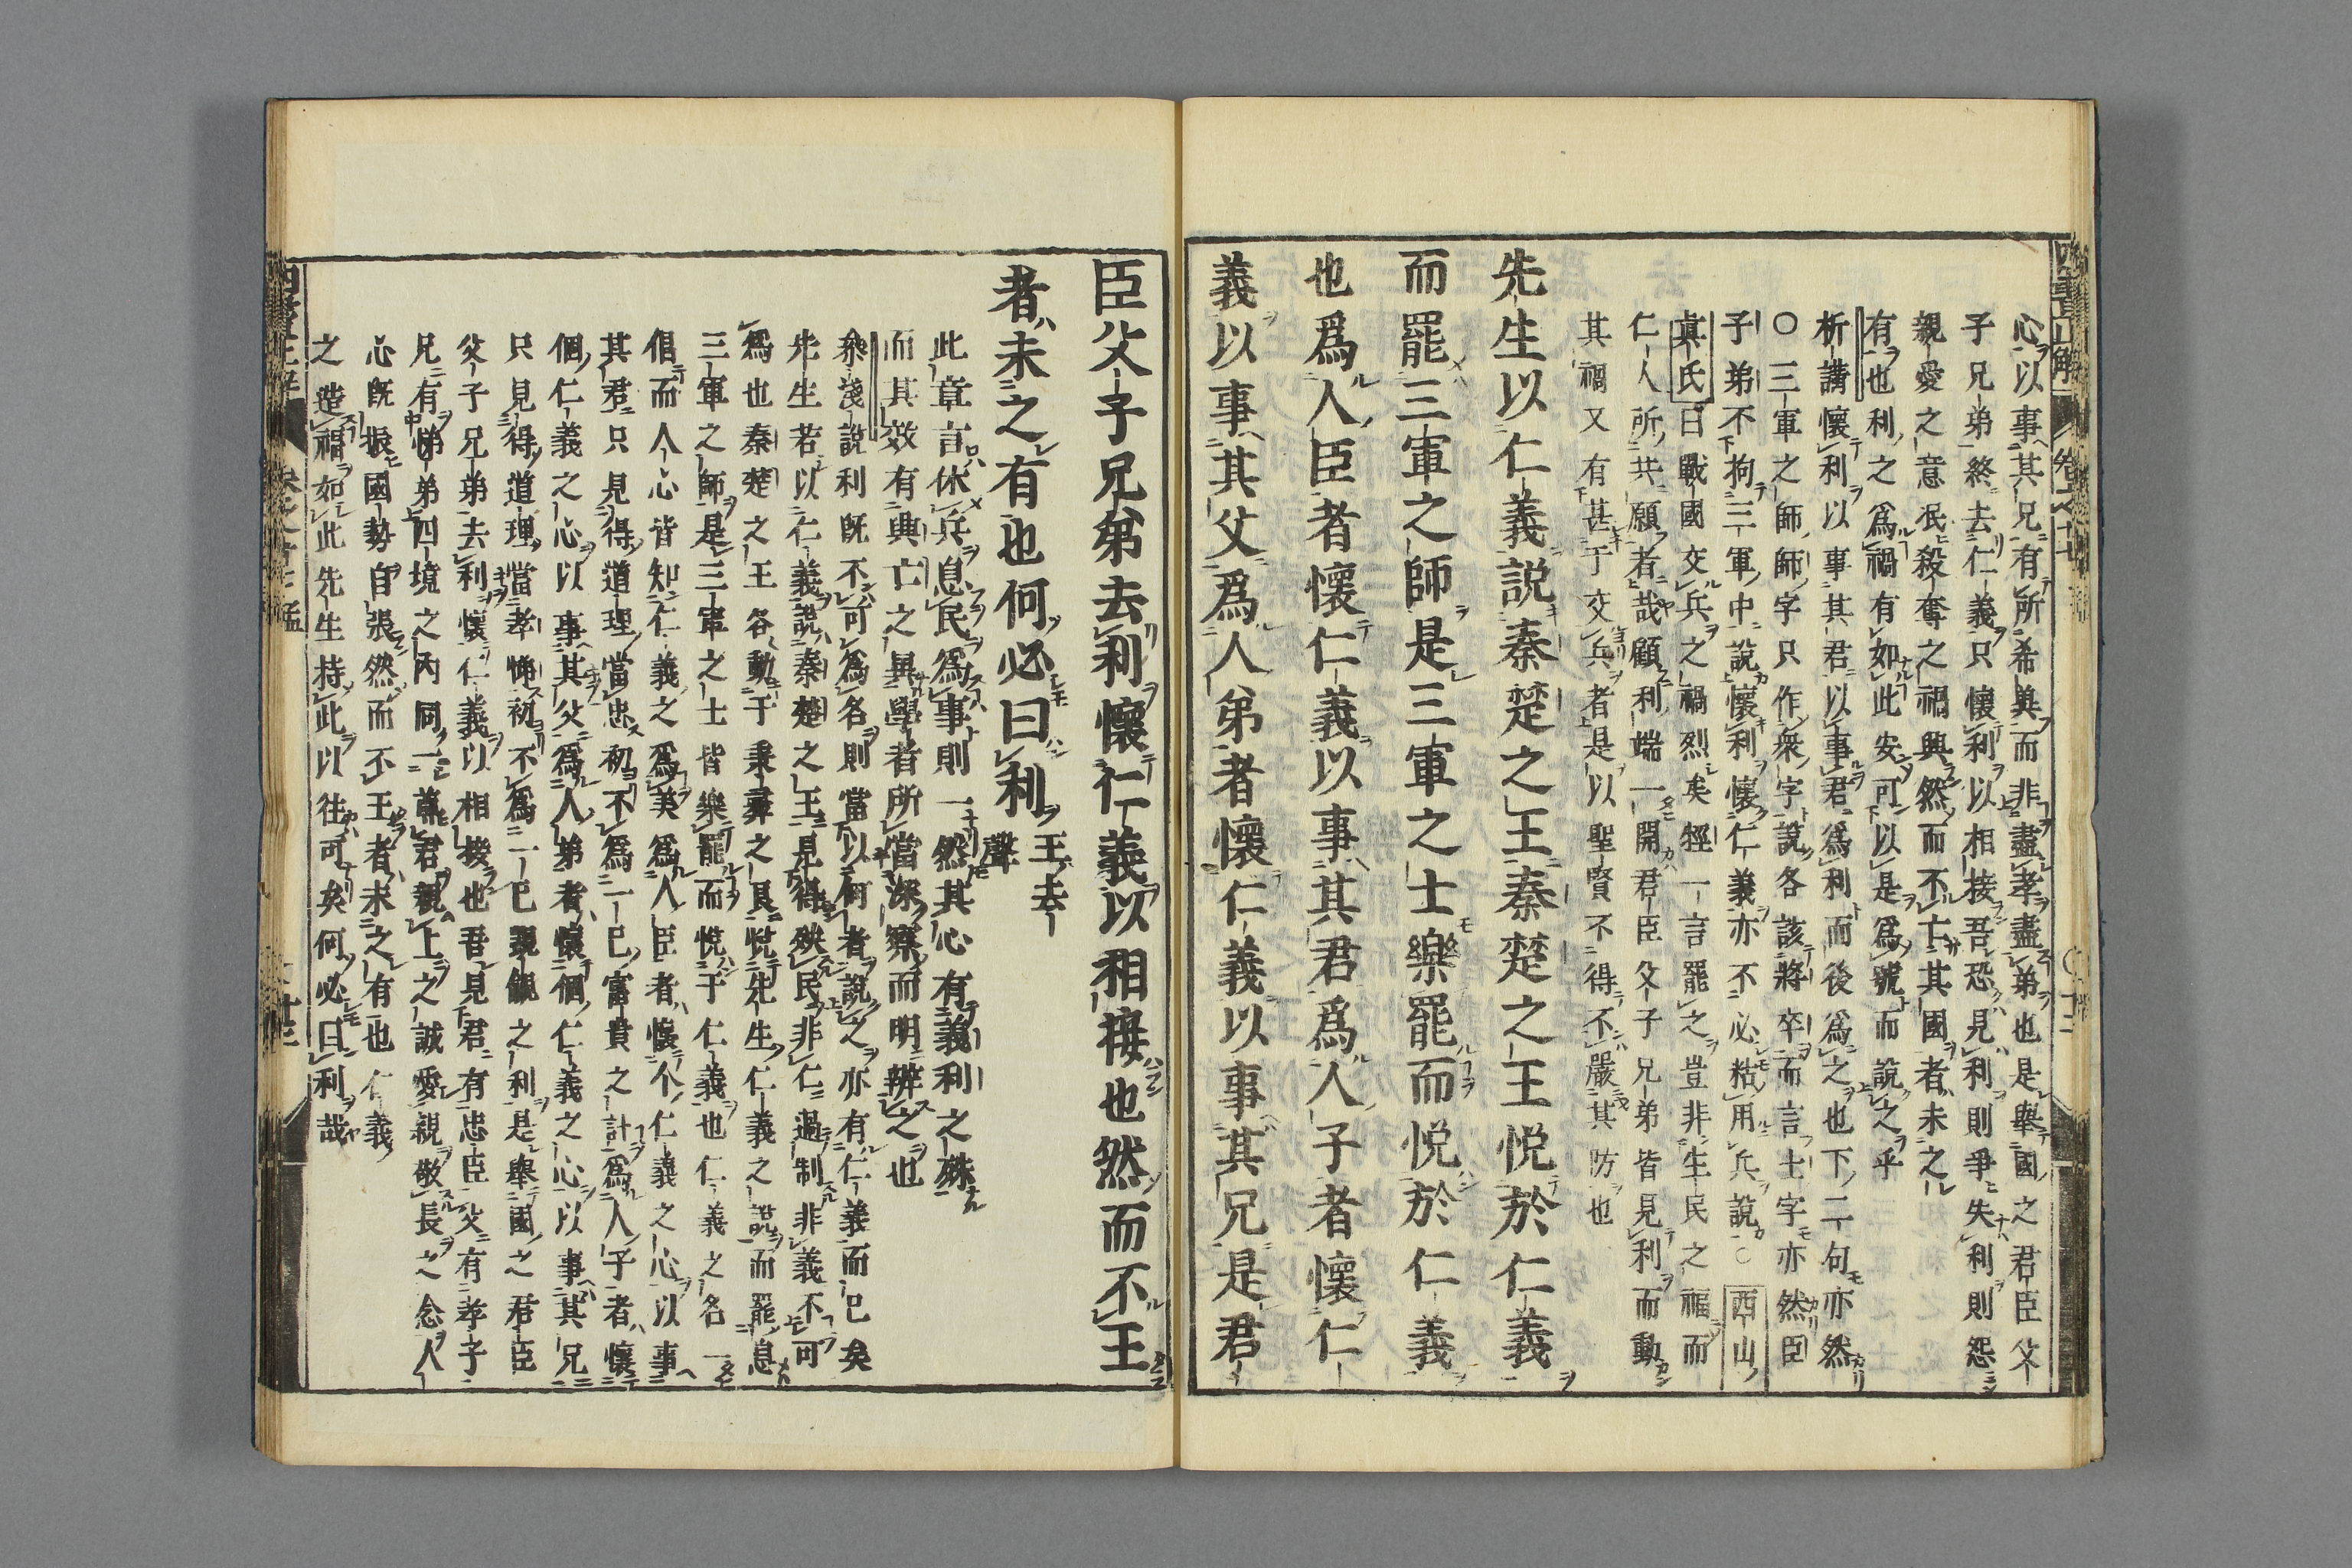 心以事其兄有所希兾而非盡孝盡弟也是舉國之君臣父
子兄弟終去仁義只懷利以相接吾恐見利則爭失利則怨
親愛之意泯殺奪之禍興然而不亡其國者未之
有也利之爲禍有如此安可以是爲號而說之乎
析講懷利以事其君以事君爲利而後爲之也下二句亦然
〇三軍之師師字只作衆字說各該將卒而言士字亦然臣
子弟不拘三軍中說懷利懷仁義亦不必粘用兵說〇西山
眞氏曰戰國交兵之禍烈矣牼一言罷之豈非生民之福而
仁人所共願者哉顧利端一開君臣父子兄弟皆見利而動
其禍又有甚于交兵者是以聖賢不得不嚴其防也
先生以仁義說秦楚之王秦楚之王悅於仁義
而罷三軍之師是三軍之士樂罷而悅於仁義
也爲人臣者懷仁義以事其君爲人子者懷仁
義以事其父爲人弟者懷仁義以事其兄是君
臣父子兄弟去利懷仁義以相接也然而不王
者未之有也何必曰利
王去
聲
此章言休兵息民爲事則一然其心有義利之殊
而其效有興亡之異學者所當深察而明辨之也
𠫵淺說利既不可爲名則當以何者說之亦有仁義而已矣
先生若以仁義說秦楚之王見得殃民非仁過制非義不可
爲也秦楚之王各動于秉彝之良悅先生仁義之說而罷息
三軍之師是三軍之士皆樂罷而悅于仁義也仁義之名一
倡而人心皆知仁義之爲美爲人臣者懷个仁義之心以事
其君只見得道理當忠初不爲一己富貴之計爲人子者懷
個仁義之心以事其父爲人弟者懷個仁義之心以事其兄
只見得道理當孝悌初不爲一己覬覦之利是舉國之君臣
父子兄弟去利懷仁義以相接也吾見君有忠臣父有孝子
兄有悌弟四境之內同一尊君親上之誠愛親敬長之念人
心既振國勢自張然而不王者未之有也仁義
之造福如此先生持此以往可矣何必曰利哉